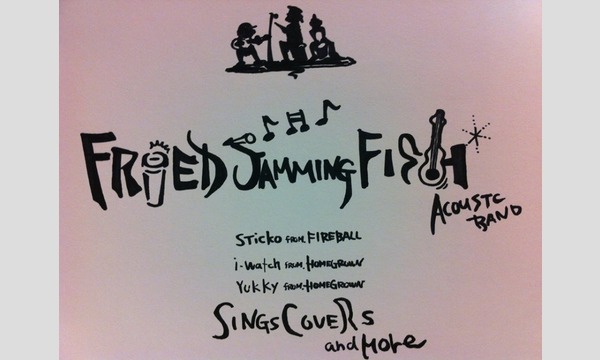 FRIED JAMMING FISH
ACOUSTC BAND
Sticko FROM FIREBALL
i-watch FROM HOMEGROWN
Yukky FROM HOMEGROWN
SINGS COVERS
and More